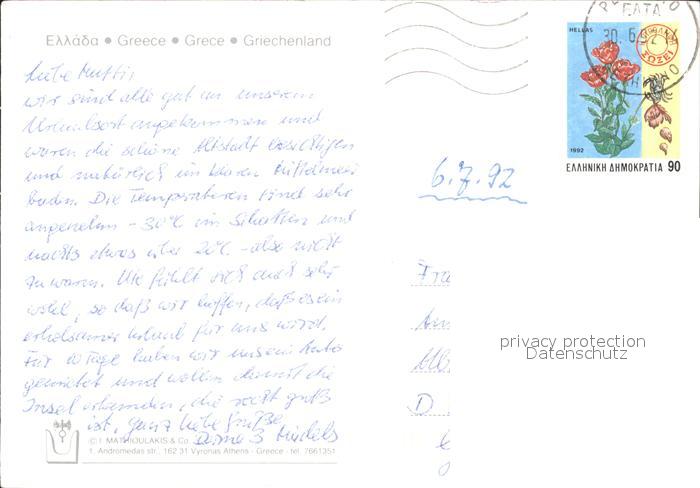 Ελλάδα • Greece • Grece • Griechenland
Liebe Mutti,
wir sind alle gut an unserem
Urlaubsort angekommen und
waren die schöne Altstadt besichtigen
und natürlich im klaren Mittelmeer
baden. Die Temperaturen sind sehr
angenehm - 30°C im Schatten und
nachts etwas über 20°C - also nicht
zu warm. Ute fühlt sich auch sehr
wohl, so daß wir hoffen, daß es ein
erholsamer Urlaub für uns wird.
Für 10 Tage haben wir unsein Auto
gemietet und wollen damit die
Insel erkunden, die recht groß
ist, ganz liebe Grüße
Deine 3 Mädels
© I. MATHIOULAKIS & Co.
1, Andromedas str., 162 31 Vyronas Athens - Greece - tel. 7661351
HELLAS
ΣΩΖΕΙ
30. 6
1992
ΕΛΛΗΝΙΚΗ ΔΗΜΟΚΡΑΤΙΑ 90
6.7.92
Fra
D
privacy protection
Datenschutz